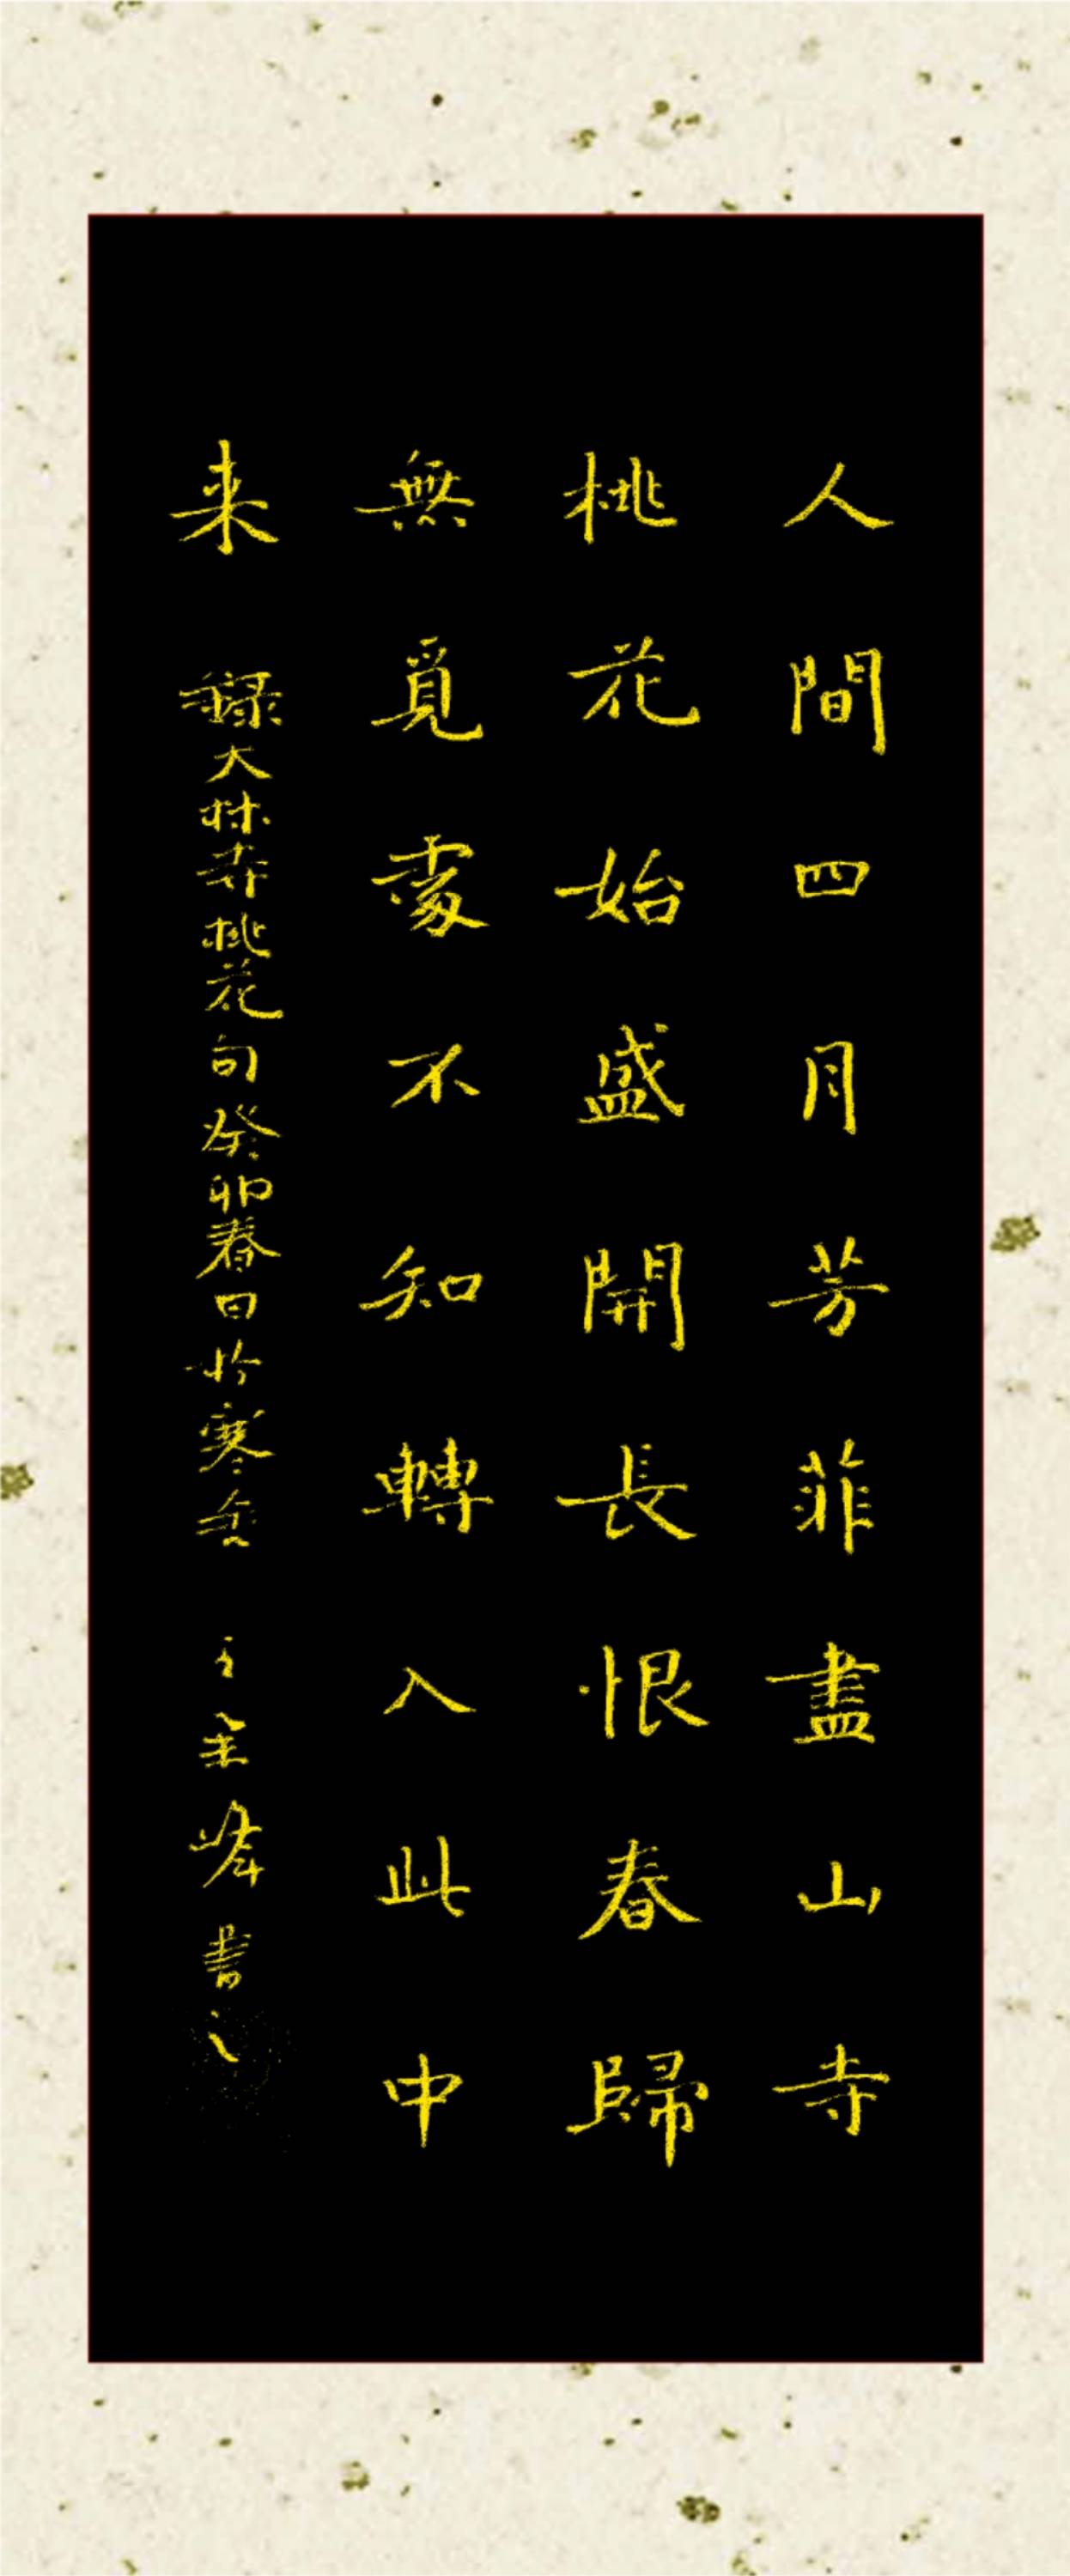 人間四月芳菲盡山寺
桃花始盛開長恨春歸
無覓處不知轉入此中
来 録大林寺桃花句癸卯春日於寒舍 王金峰書